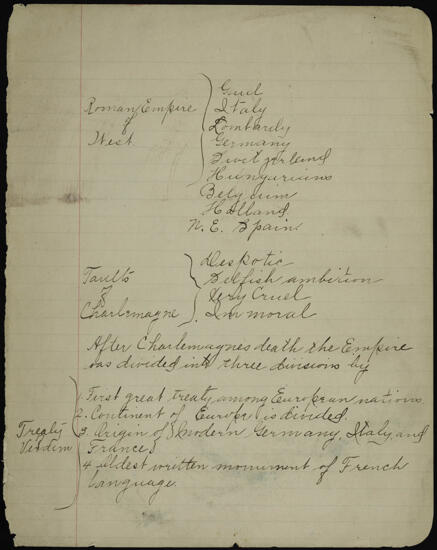 Gaul
Roman Empire
of
West
Italy
Lombardy
Germany
Switzerland
Hungarians
Belgium
Holland
N. E. Spain
Faults
of
Charlemagne
Despotic
Selfish ambition
Very Cruel
Immoral
After Charlemagnes death the Empire
was divided into three divisions by
Treaty
Verdun
1. First great treaty among European nations.
2. Continent of Europe is divided.
3. Origin of modern Germany, Italy and
France.
4 oldest written monument of French
language.